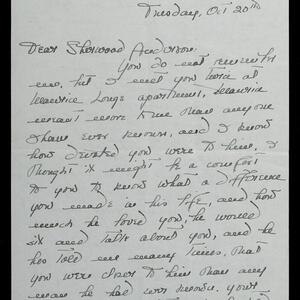 Tuesday, Oct 20th
Dear Sherwood Anderson:
You do not remember
me, but I met you twice at
Maurice Longs apartment, Maurice
meant more to me than anyone
I have ever known, and I know
how devoted you were to him. I
thought it might be a comfort
to you to know what a difference
you made in his life, and how
much he loved you, he would
sit and talk about you, and he
has told me many times, that
you were closer to him than any
man he had ever known. Your